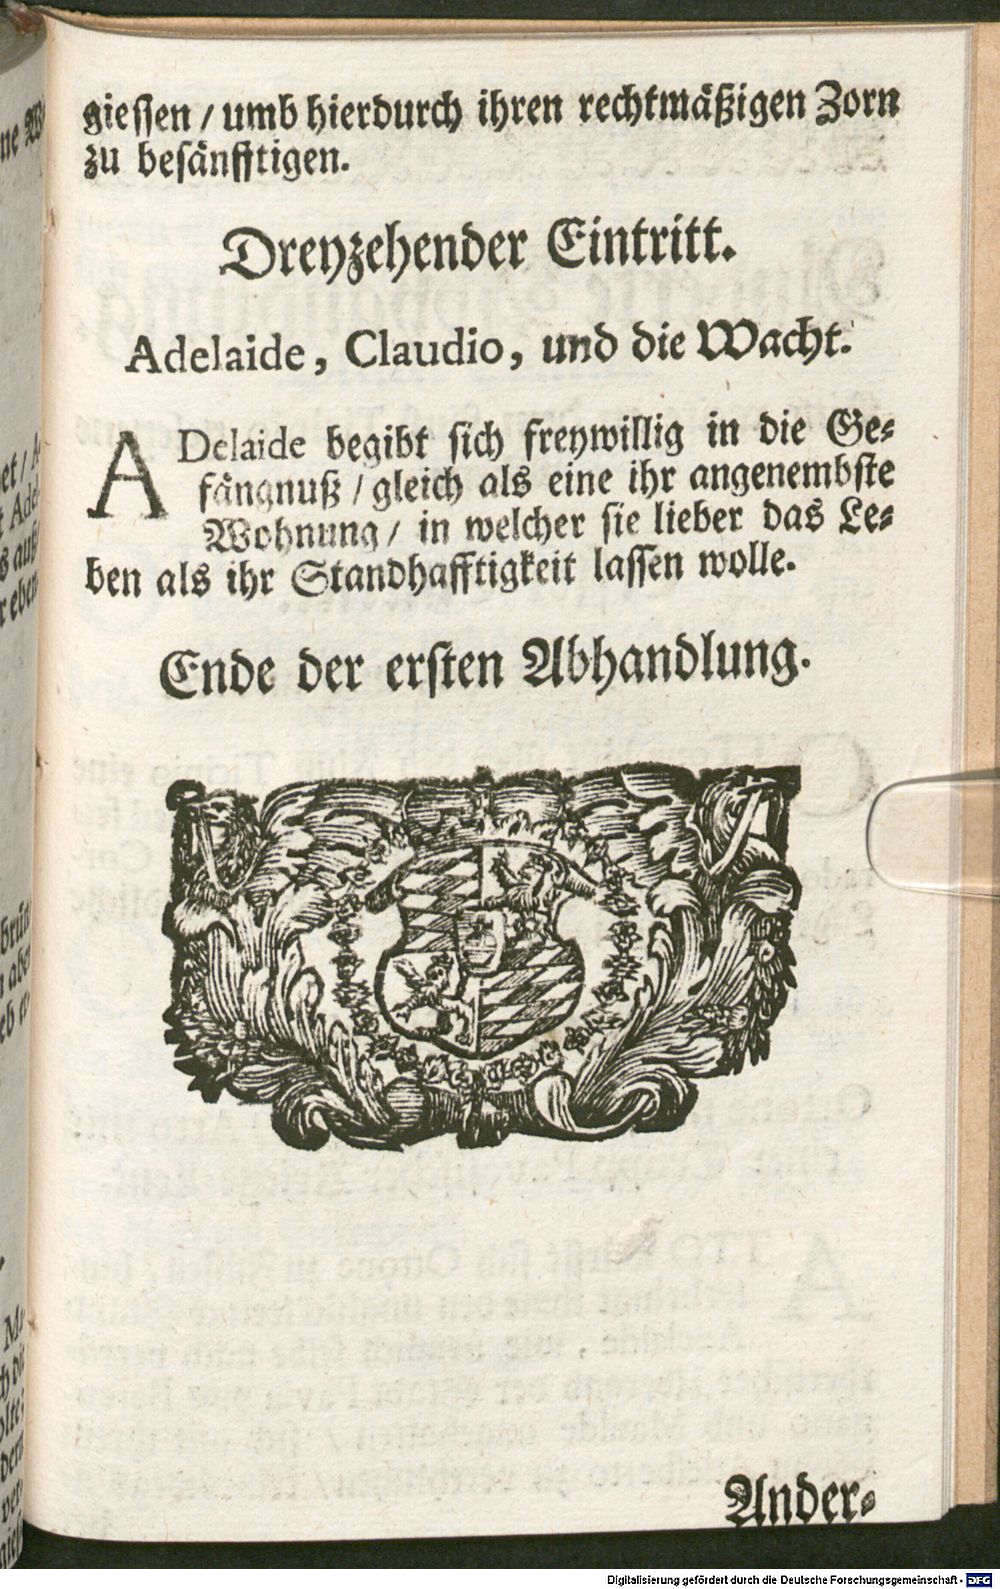 giessen / umb hierdurch ihren rechtmäßigen Zorn
zu besänfftigen.
Dreyzehender Eintritt.
Adelaide, Claudio, und die Wacht.
ADelaide begibt sich freywillig in die Ge-
fängnuß / gleich als eine ihr angenembste
Wohnung / in welcher sie lieber das Le-
ben als ihr Standhafftigkeit lassen wolle.
Ende der ersten Abhandlung.
Ander-
Digitalisierung gefördert durch die Deutsche Forschungsgemeinschaft - DFG